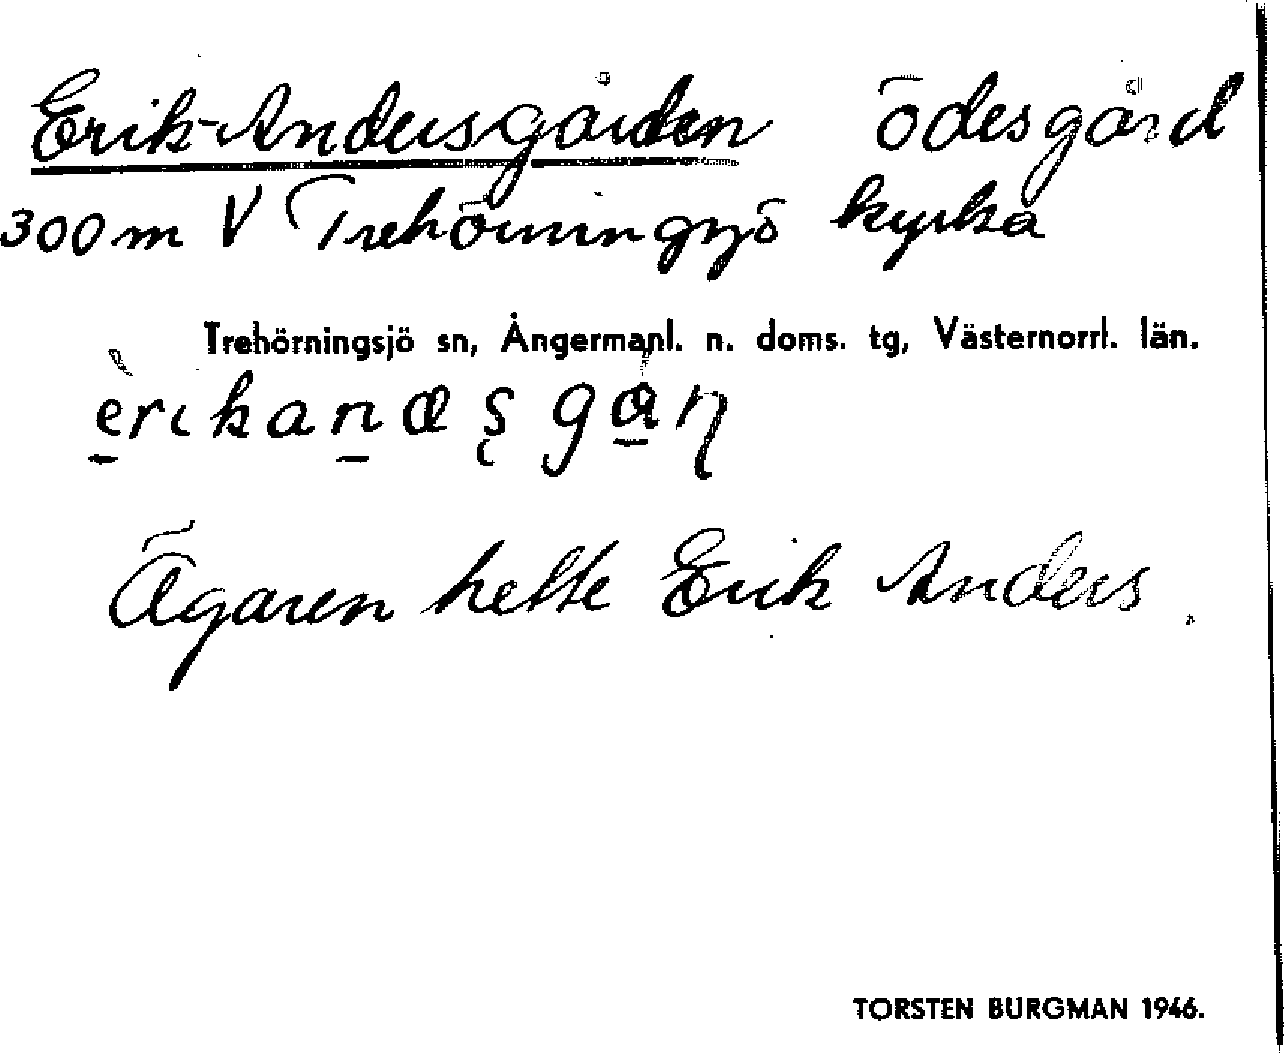 Erik-Andersgården ödesgård
300 m V Trehörningsjö kyrka
Trehörningsjö sn, Ångermanl. n. doms. tg, Västernorrl. län.
Ägaren hette Erik Anders.
TORSTEN BURGMAN 1946.